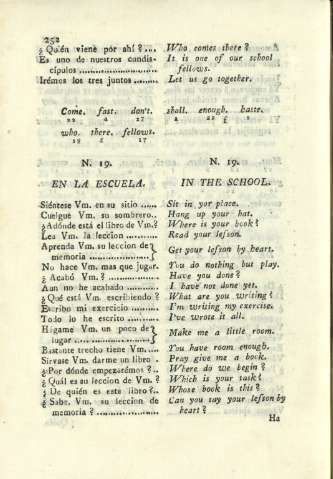 252
¿Quién viene por ahí?.... Who comes there?
Es uno de nuestros condis- It is one of our school
cípulos .................... fellows.
Irémos los tres juntos ....... Let us go together.
Come. fast. don't. shall. enough. haste.
who. there. fellows.
N. 19. N. 19.
EN LA ESCUELA. IN THE SCHOOL.
Siéntese Vm. en su sitio ..... Sit in yor place.
Cuelgue Vm. su sombrero.. Hang up your hat.
¿Adónde está el libro de Vm.? Where is your book?
Lea Vm. la leccion .......... Read your lesson.
Aprenda Vm. su leccion de } Get your lesson by heart.
memoria ..................
No hace Vm. mas que jugar. You do nothing but play.
¿ Acabó Vm. ? ............... Have you done?
Aun no he acabado .......... I have not done yet.
¿ Qué está Vm. escribiendo ? What are you writing?
Escribo mi exercicio ......... I'm writing my exercise.
Todo lo he escrito ........... I've wrote it all.
Hágame Vm. un poco de } Make me a little room.
lugar .....................
Bastante trecho tiene Vm..... You have room enough.
Sirvase Vm. darme un libro . Pray give me a book.
¿ Por dónde empezarémos ?.. Where do we begin?
¿ Quál es su leccion de Vm. ? Which is your task?
¿ De quién es este libro?.. Whose book is this?
¿ Sabe Vm. su leccion de Can you say your lesson by
memoria ? ................. heart?
Ha